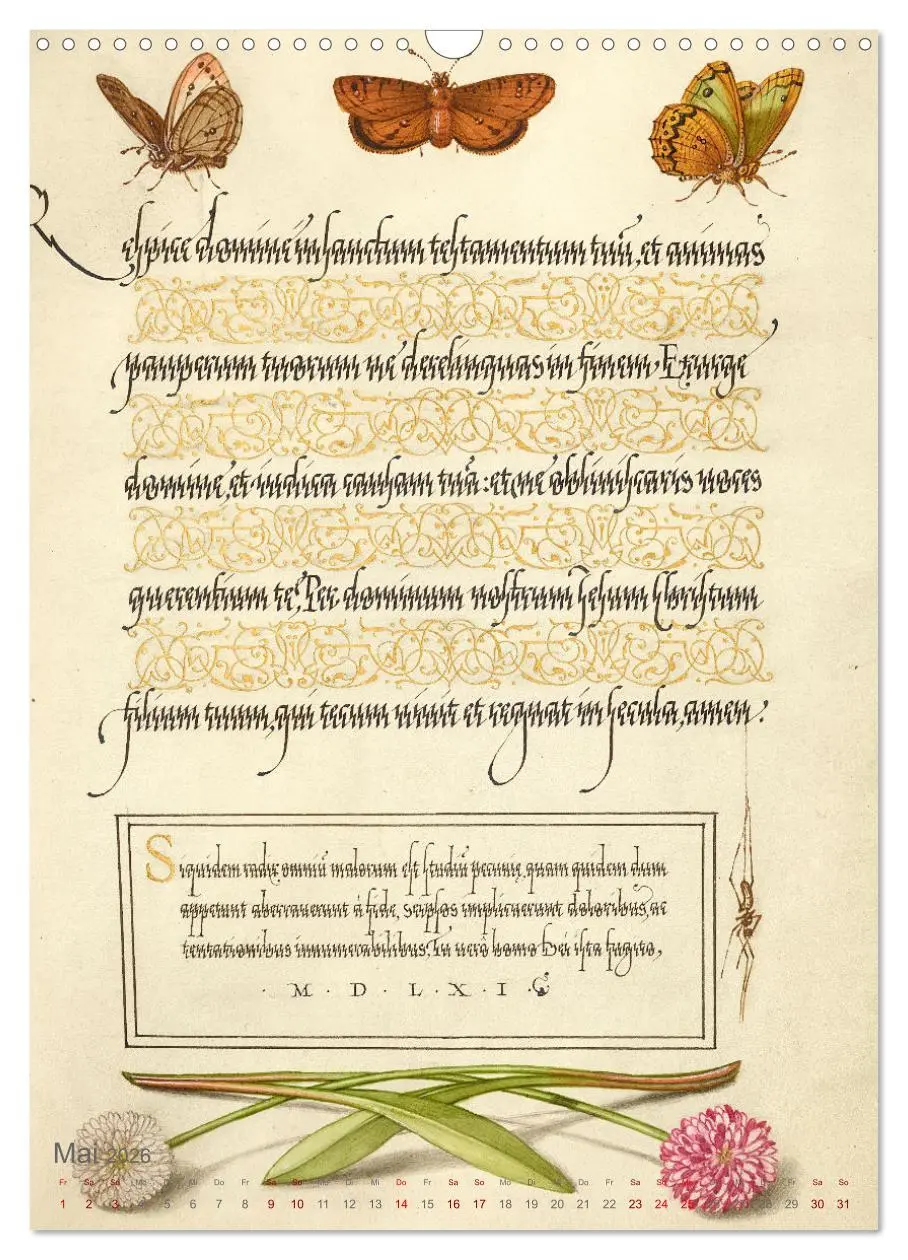 Respice domine in sanctum testamentum tuũ, et animas
pauperum tuorum ne derelinquas in finem, Exurge
domine, et iudica causam tuã: et ne obliuiscaris uoces
querentium te. Per dominum nostrum Jesum Christum
filium tuum, qui tecum uiuit et regnat in secula, amen.
Siquidem radix omniũ malorum est studiũ pecunię, quam quidem dum
appetunt aberrauerunt à fide, seipsos implicuerunt doloribus, ac
tentationibus innumerabilibus, Tu uero homo Dei ista fugito,
· M · D · L · X · I ·
Mai 2026
Fr Sa So Mo Di Mi Do Fr Sa So Mo Di Mi Do Fr Sa So Mo Di Mi Do Fr Sa So Mo Di Mi Do Fr Sa So
1 2 3 4 5 6 7 8 9 10 11 12 13 14 15 16 17 18 19 20 21 22 23 24 25 26 27 28 29 30 31